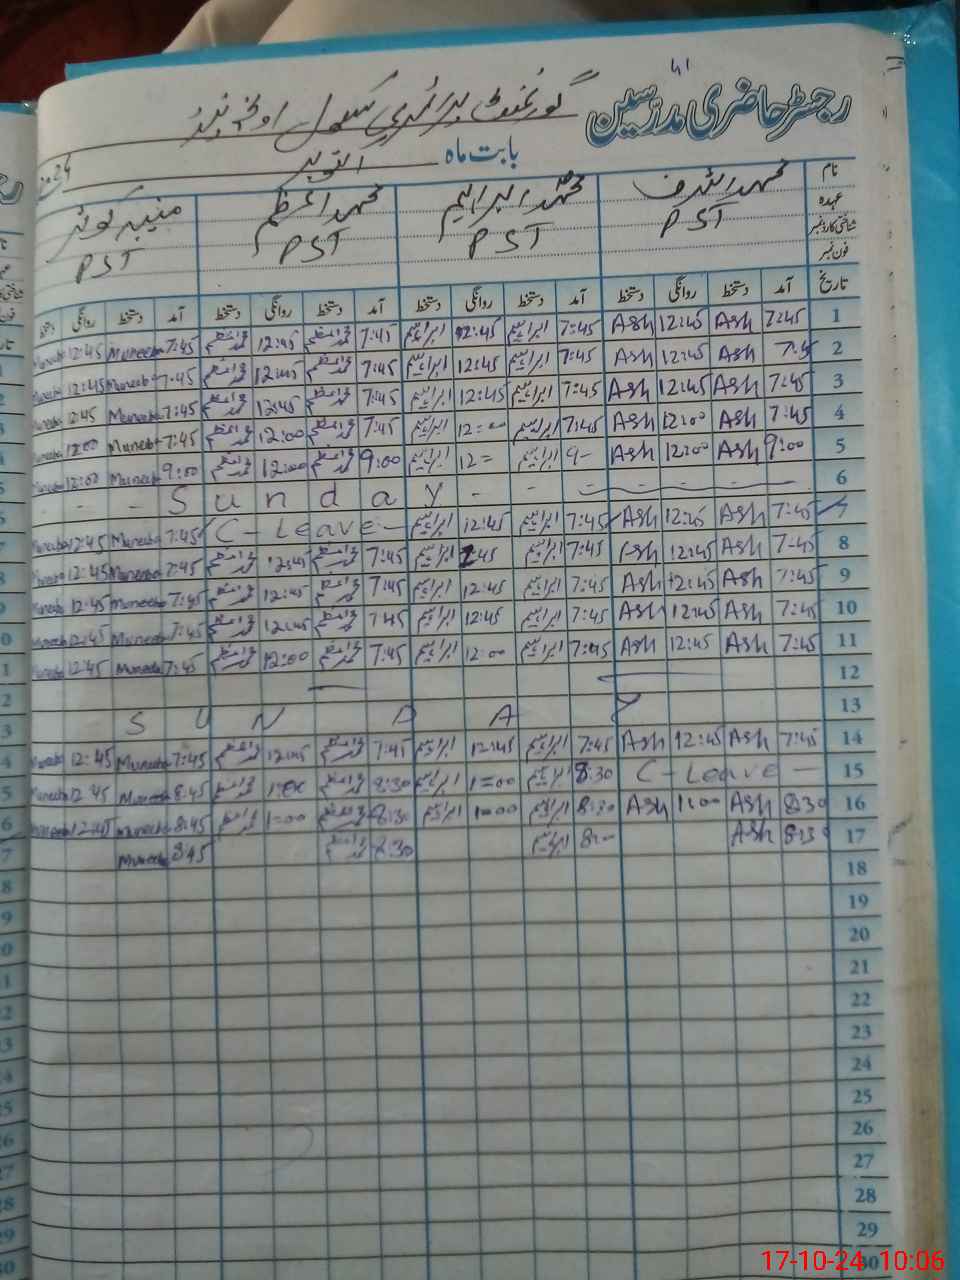 41
رجسٹر حاضری مدرسین
گورنمنٹ پرائمری سکول
بابت ماہ اکتوبر 2024
نام محمد اشرف محمد ابراہیم محمد اعظم منیبہ کوثر
عہدہ PST PST PST PST
شناختی کارڈ نمبر
فون نمبر
تاریخ آمد دستخط روانگی دستخط آمد دستخط روانگی دستخط آمد دستخط روانگی دستخط آمد دستخط روانگی دستخط
1 7:45 Ash 12:45 Ash 7:45 ابراہیم 12:45 ابراہیم 7:45 محمد اعظم 12:45 محمد اعظم 7:45 Muneeba 12:45 Muneeba
2 7:45 Ash 12:45 Ash 7:45 ابراہیم 12:45 ابراہیم 7:45 محمد اعظم 12:45 محمد اعظم 7:45 Muneeba 12:45 Muneeba
3 7:45 Ash 12:45 Ash 7:45 ابراہیم 12:45 ابراہیم 7:45 محمد اعظم 12:45 محمد اعظم 7:45 Muneeba 12:45 Muneeba
4 7:45 Ash 12:00 Ash 7:45 ابراہیم 12=00 ابراہیم 7:45 محمد اعظم 12:00 محمد اعظم 7:45 Muneeba 12:00 Muneeba
5 9:00 Ash 12:00 Ash 9- ابراہیم 12= ابراہیم 9:00 محمد اعظم 12:00 محمد اعظم 9:00 Muneeba 12:00 Muneeba
6 - - - Sunday - - -
7 7:45 Ash 12:45 Ash 7:45 ابراہیم 12:45 ابراہیم C-Leave- 7:45 Muneeba 12:45 Muneeba
8 7:45 Ash 12:45 Ash 7:45 ابراہیم 12:45 ابراہیم 7:45 محمد اعظم 12:45 محمد اعظم 7:45 Muneeba 12:45 Muneeba
9 7:45 Ash 12:45 Ash 7:45 ابراہیم 12:45 ابراہیم 7:45 محمد اعظم 12:45 محمد اعظم 7:45 Muneeba 12:45 Muneeba
10 7:45 Ash 12:45 Ash 7:45 ابراہیم 12:45 ابراہیم 7:45 محمد اعظم 12:45 محمد اعظم 7:45 Muneeba 12:45 Muneeba
11 7:45 Ash 12:45 Ash 7:45 ابراہیم 12:00 ابراہیم 7:45 محمد اعظم 12:00 محمد اعظم 7:45 Muneeba 12:45 Muneeba
12
13 SUNDAY
14 7:45 Ash 12:45 Ash 7:45 ابراہیم 12:45 ابراہیم 7:45 محمد اعظم 12:45 محمد اعظم 7:45 Muneeba 12:45 Muneeba
15 C-Leave- 8:30 ابراہیم 1=00 ابراہیم 8:30 محمد اعظم 1:00 محمد اعظم 8:45 Muneeba 12:45 Muneeba
16 8:30 Ash 1:00 Ash 8:30 ابراہیم 1=00 ابراہیم 8:30 محمد اعظم 1=00 محمد اعظم 8:45 Muneeba 12:45 Muneeba
17 8:30 Ash ابراہیم 8:30 محمد اعظم 8:45 Muneeba
18
19
20
21
22
23
24
25
26
27
28
29
30
17-10-24 10:06